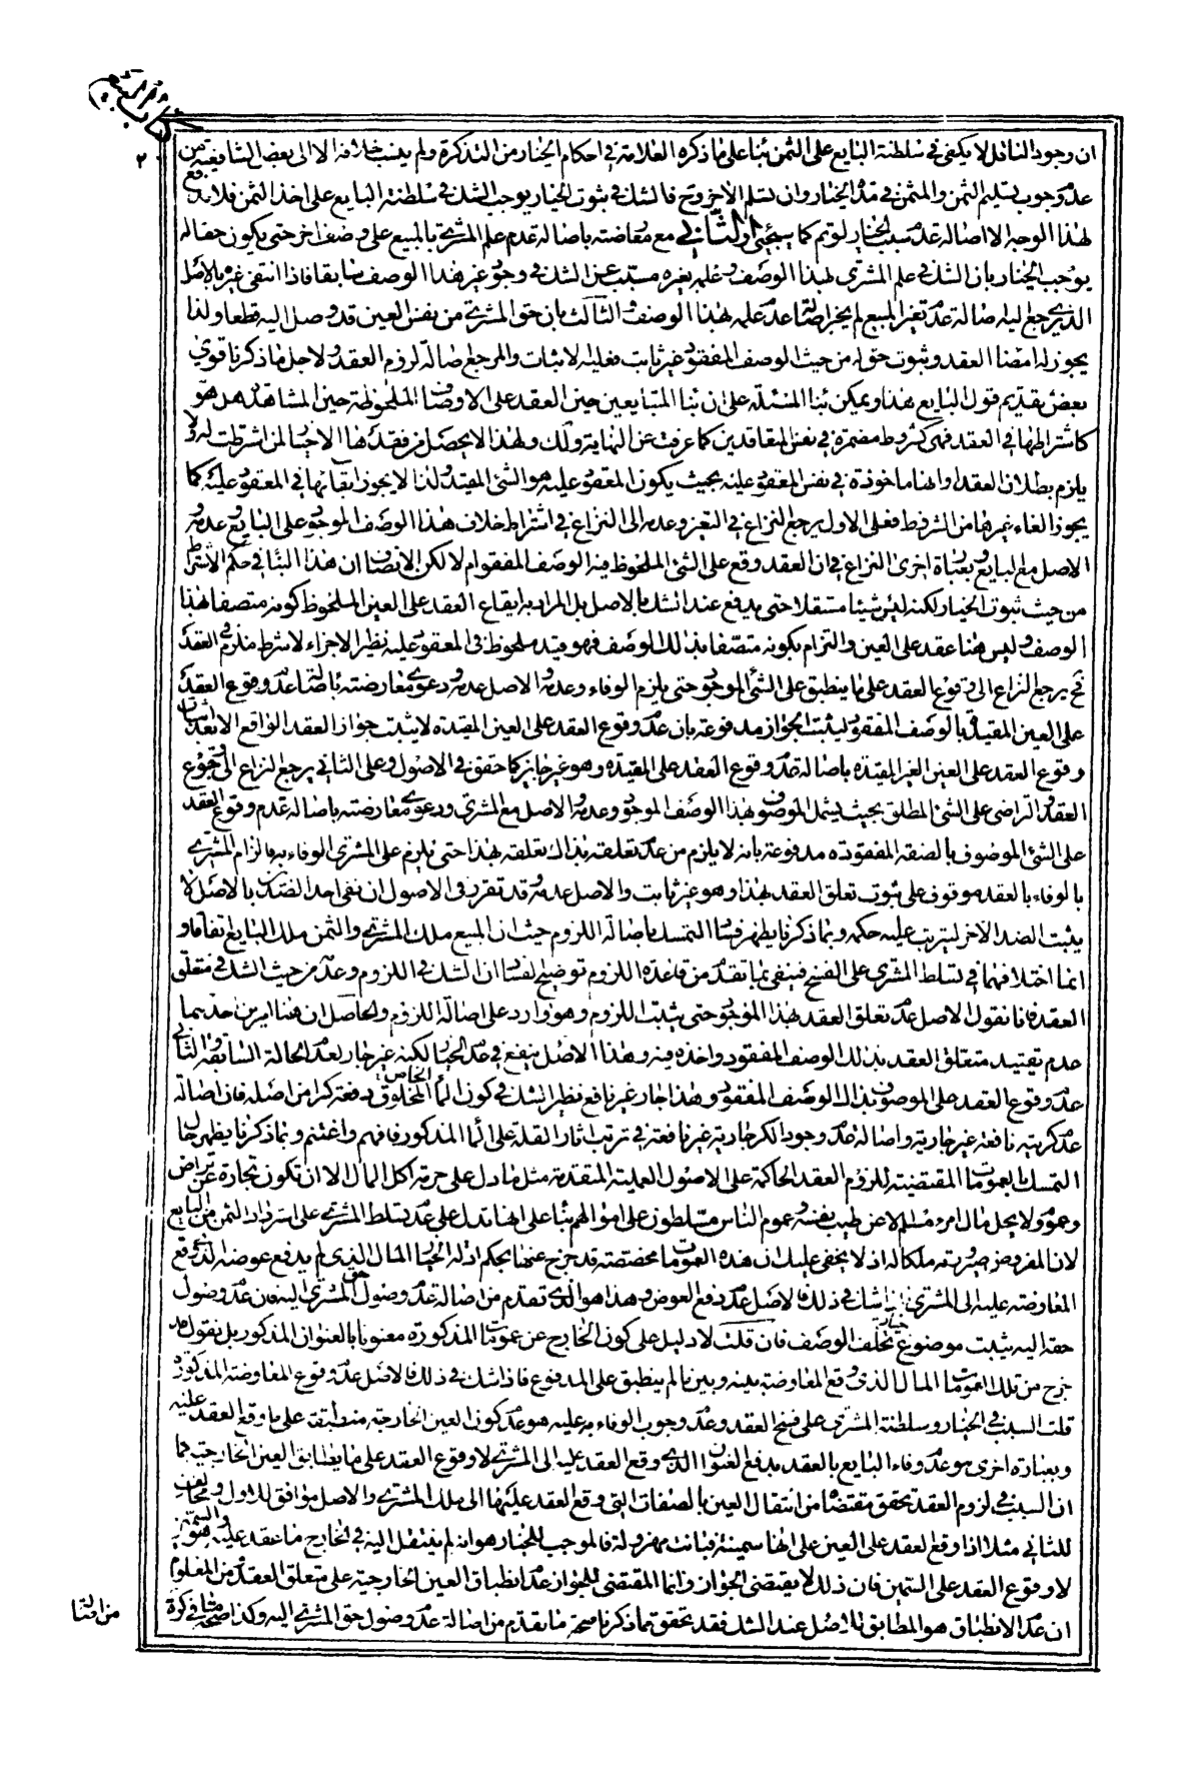 كتاب البيع
٢٠
ان وجود الناقل لا يكفى فى سلطنة البايع على الثمن بناء على ما ذكره العلامة فى احكام الخيار من التذكرة ولم ينسب خلافه الا الى بعض الشافعية من
عدم وجوب تسليم الثمن والمثمن فى مدة الخيار وان تسلم الاخر وح فالشك فى ثبوت الخيار يوجب الشك فى سلطنة البايع على اخذ الثمن فلا مدفع
لهذا الوجه الا اصالة عدم سبب الخيار لو تم كما سيجئ والثانى مع معارضته باصالة عدم علم المشترى بالمبيع على وصف اخر حتى يكون حقا له
يوجب الخيار بان الشك فى علم المشترى بهذا الوصف وعلمه بغيره مسبب عن الشك فى وجود غير هذا الوصف سابقا فاذا انتفى غيره بالاصل
الذى يرجع اليه اصالة عدم تغير المبيع لم يجر اصالة عدم علمه بهذا الوصف والثالث بان حق المشترى من نفس العين قد وصل اليه قطعا ولذا
يجوز له امضاء العقد وثبوت حق له من حيث الوصف المفقود غير ثابت فعليه الاثبات والمرجع اصالة لزوم العقد ولاجل ما ذكرنا قوى
بعض تقديم قول البايع هذا ويمكن بناء المسئلة على ان بناء المتبايعين حين العقد على الاوصاف الملحوظة حين المشاهدة هل هو
كاشتراطها فى العقد فهى كشروط مضمرة فى نفس المتعاقدين كما عرفت عن النهاية ولك ولهذا لا يحصل من فقدها الا خيار لمن اشترطت له ولا
يلزم بطلان العقد او انها ماخوذة فى نفس المعقود عليه بحيث يكون المعقود عليه هو الشئ المقيد ولذا لا يجوز القائها فى المعقود عليه كما
يجوز الغاء غيرها من الشروط فعلى الاول يرجع النزاع فى التغير وعدمه الى النزاع فى اشتراط خلاف هذا الوصف الموجود على البايع وعدمه و
الاصل مع البايع وبعبارة اخرى النزاع فى ان العقد وقع على الشئ الملحوظ فيه الوصف المفقود ام لا لكن الانصاف ان هذا البناء فى حكم الاشتراط
من حيث ثبوت الخيار لكنه ليس شيئا مستقلا حتى يدفع عند الشك بالاصل بل المراد به ايقاع العقد على العين الملحوظ كونه متصفا بهذا
الوصف وليس هنا عقد على العين والتزام بكونه متصفا بذلك الوصف فهو قيد ملحوظ فى المعقود عليه نظير الاجزاء لا شرط ملزم فى العقد
فح يرجع النزاع الى وقوع العقد على ما ينطبق على الشئ الموجود حتى يلزم الوفاء وعدمه والاصل عدمه ودعوى معارضته باصالة عدم وقوع العقد
على العين المقيدة بالوصف المفقود ليثبت الجواز مدفوعة بان عدم وقوع العقد على العين المقيدة لا يثبت جواز العقد الواقع الا بعد اثبات
وقوع العقد على العين الغير المقيدة باصالة عدم وقوع العقد على المقيدة وهو غير جايز كما حقق فى الاصول وعلى الثانى يرجع النزاع الى وقوع
العقد والتراضى على الشئ المطلق بحيث يشمل الموصوف بهذا الوصف الموجود وعدمه والاصل مع المشترى ودعوى معارضته باصالة عدم وقوع العقد
على الشئ الموصوف بالصفة المفقودة مدفوعة بانه لا يلزم من عدم تعلقه بذاك تعلقه بهذا حتى يلزم على المشترى الوفاء به فالزام المشترى
بالوفاء بالعقد موقوف على ثبوت تعلق العقد بهذا وهو غير ثابت والاصل عدمه وقد تقرر فى الاصول ان نفى احد الضدين بالاصل لا
يثبت الضد الاخر ليترتب عليه حكمه وبما ذكرنا يظهر فساد التمسك باصالة اللزوم حيث ان المبيع ملك المشترى والثمن ملك البايع اتفاقا و
انما اختلافهما فى تسلط المشترى على الفسخ فينفى بما تقدم من قاعدة اللزوم توضيح الفساد ان الشك فى اللزوم وعدمه من حيث الشك فى متعلق
العقد فانا نقول الاصل عدم تعلق العقد بهذا الموجود حتى يثبت اللزوم وهو وارد على اصالة اللزوم والحاصل ان هنا امرين احدهما
عدم تقييد متعلق العقد بذلك الوصف المفقود واخذه فيه وهذا الاصل ينفع فى عدم الخيار لكنه غير جار لعدم الحالة السابقة والثانى
عدم وقوع العقد على الموصوف بذاك الوصف المفقود وهذا جار غير نافع نظير الشك فى كون الماء المخلوق الخاص دفعة كرا من اصله فان اصالة
عدم كريته نافعة غير جارية واصالة عدم وجود الكر جارية غير نافعة فى ترتب اثار القلة على الماء المذكور فافهم واغتنم وبما ذكرنا يظهر حال
التمسك بالعمومات المقتضية للزوم العقد الحاكمة على الاصول العملية المتقدمة مثل ما دل على حرمة اكل المال الا ان تكون تجارة عن تراض
وعموم ولا يحل مال امرء مسلم الا عن طيب نفسه وعموم الناس مسلطون على اموالهم بناء على انها تدل على عدم تسلط المشترى على استرداد الثمن من البايع
لان المفروض صيرورته ملكا له اذ لا يخفى عليك ان هذه العمومات مخصصة قد خرج عنها بحكم ادلة الخيار المال الذى لم يدفع عوضه الذى وقع
المعاوضة عليه الى المشترى اذا شك فى ذلك فالاصل عدم دفع العوض وهذا هو الذى تقدم من اصالة عدم وصول حق المشترى اليه فان عدم وصول
حقه اليه يثبت موضوع خيار تخلف الوصف فان قلت لا دليل على كون الخارج عن عمومات المذكورة معنونا بالعنوان المذكور بل نقول قد
خرج من تلك العمومات المال الذى وقع المعاوضة بينه وبين ما لم ينطبق على المدفوع فاذا شك فى ذلك فالاصل عدم وقوع المعاوضة المذكورة
قلت السبب فى الخيار وسلطنة المشترى على فسخ العقد وعدم وجوب الوفاء به عليه هو عدم كون العين الخارجة منطبقة على ما وقع العقد عليه
وبعبارة اخرى هو عدم وفاء البايع بالعقد بدفع العنوان الذى وقع العقد عليه الى المشترى لا وقوع العقد على ما يطابق العين الخارجية كما
ان السبب فى لزوم العقد تحقق مقتضاه من انتقال العين بالصفات التى وقع العقد عليها الى ملك المشترى والاصل موافق للاول ومخالف
للثانى مثلا اذا وقع العقد على العين على انها سمينة فبانت مهزولة فالموجب للخيار هو انه لم ينتقل اليه فى الخارج ما عقد عليه وهو السمين
لا وقوع العقد على السمين فان ذلك لا يقتضى الجواز وانما المقتضى للجواز عدم انطباق العين الخارجية على متعلق العقد ومن المعلوم
ان عدم الانطباق هو المطابق للاصل عند الشك فقد تحقق مما ذكرنا صحة ما تقدم من اصالة عدم وصول حق المشترى اليه وكذا صحة ما فى كرة
من اصالة